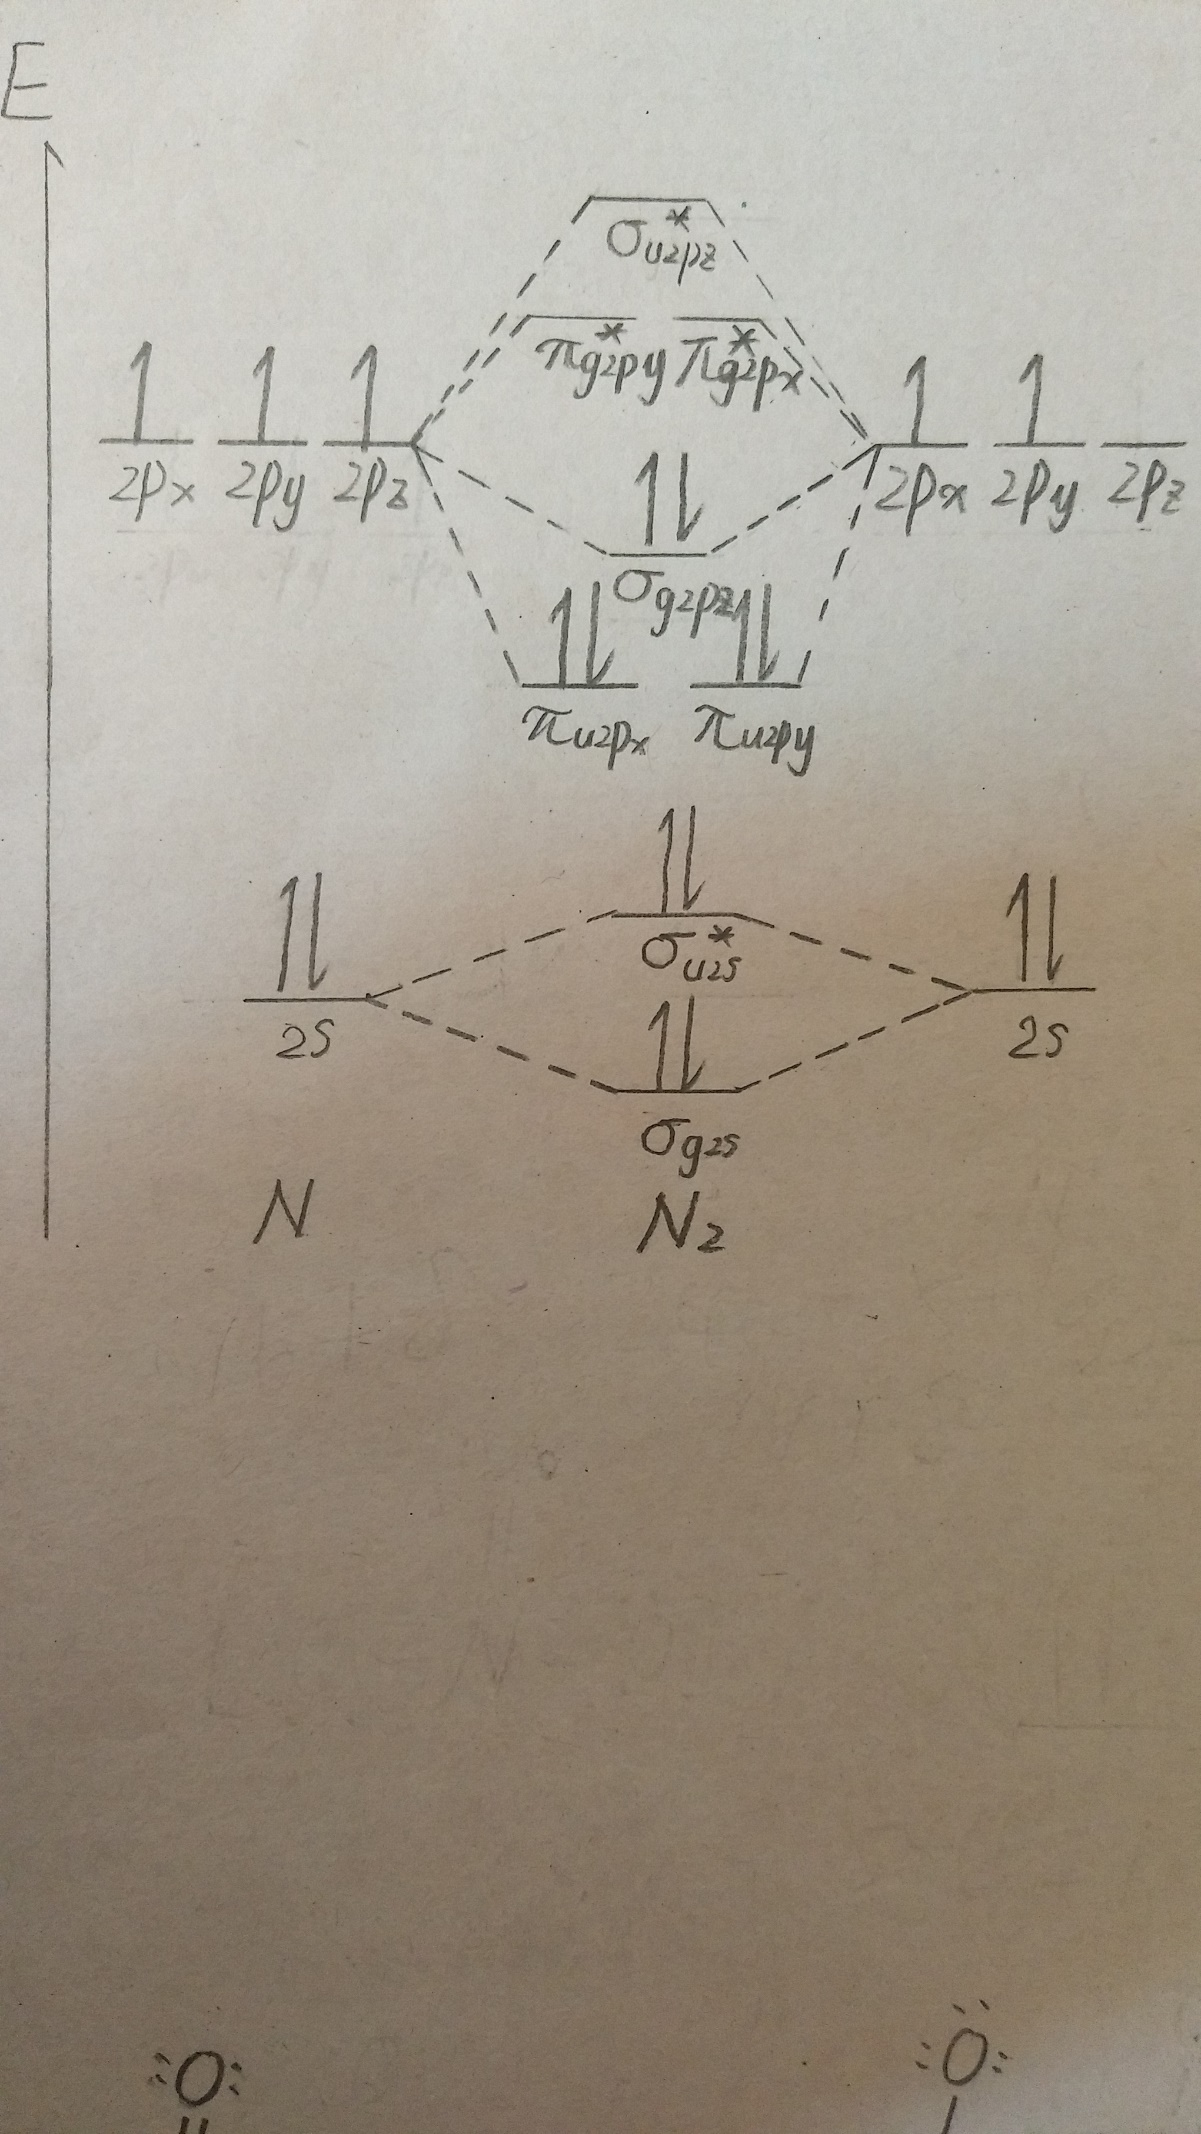 E
σ*u2pz
π*g2py π*g2px
↑ ↑ ↑ ↑ ↑
2px 2py 2pz 2px 2py 2pz
↑↓
σg2pz
↑↓ ↑↓
πu2px πu2py
↑↓
↑↓ ↑↓
σ*u2s
2s 2s
↑↓
σg2s
N N2
:O: :Ö: